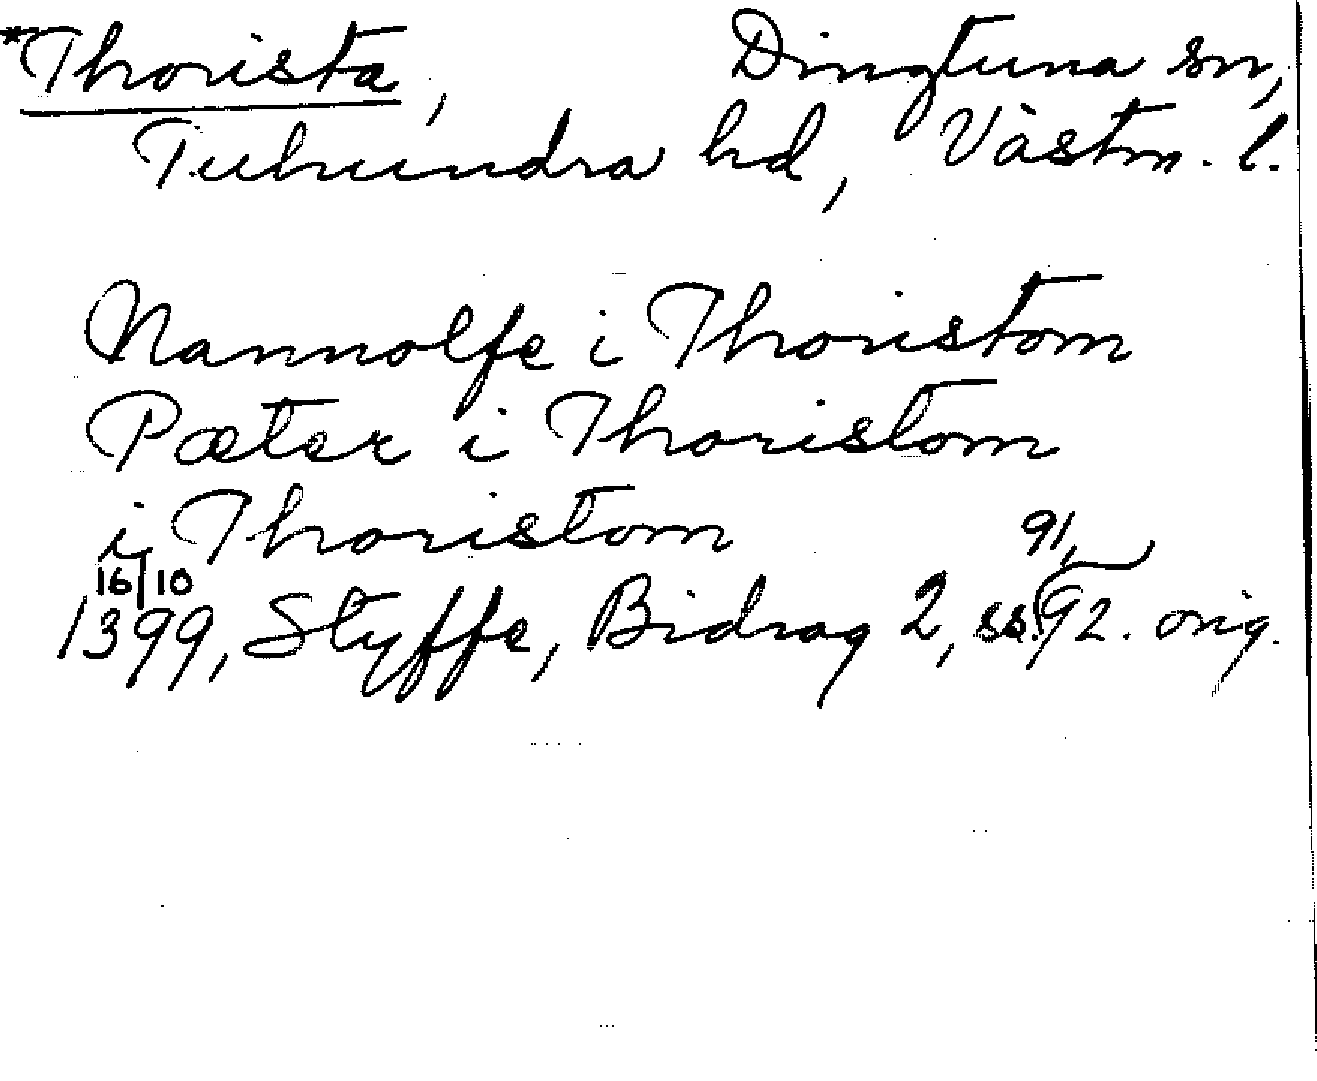 *Thorista, Dingtuna sn,
Tuhundra hd, Västm. l.
Nannolfe i Thoristom
Pæter i Thoristom
i Thoristom
16/10 91,
1399, Styffe, Bidrag 2, ss. 92. orig.